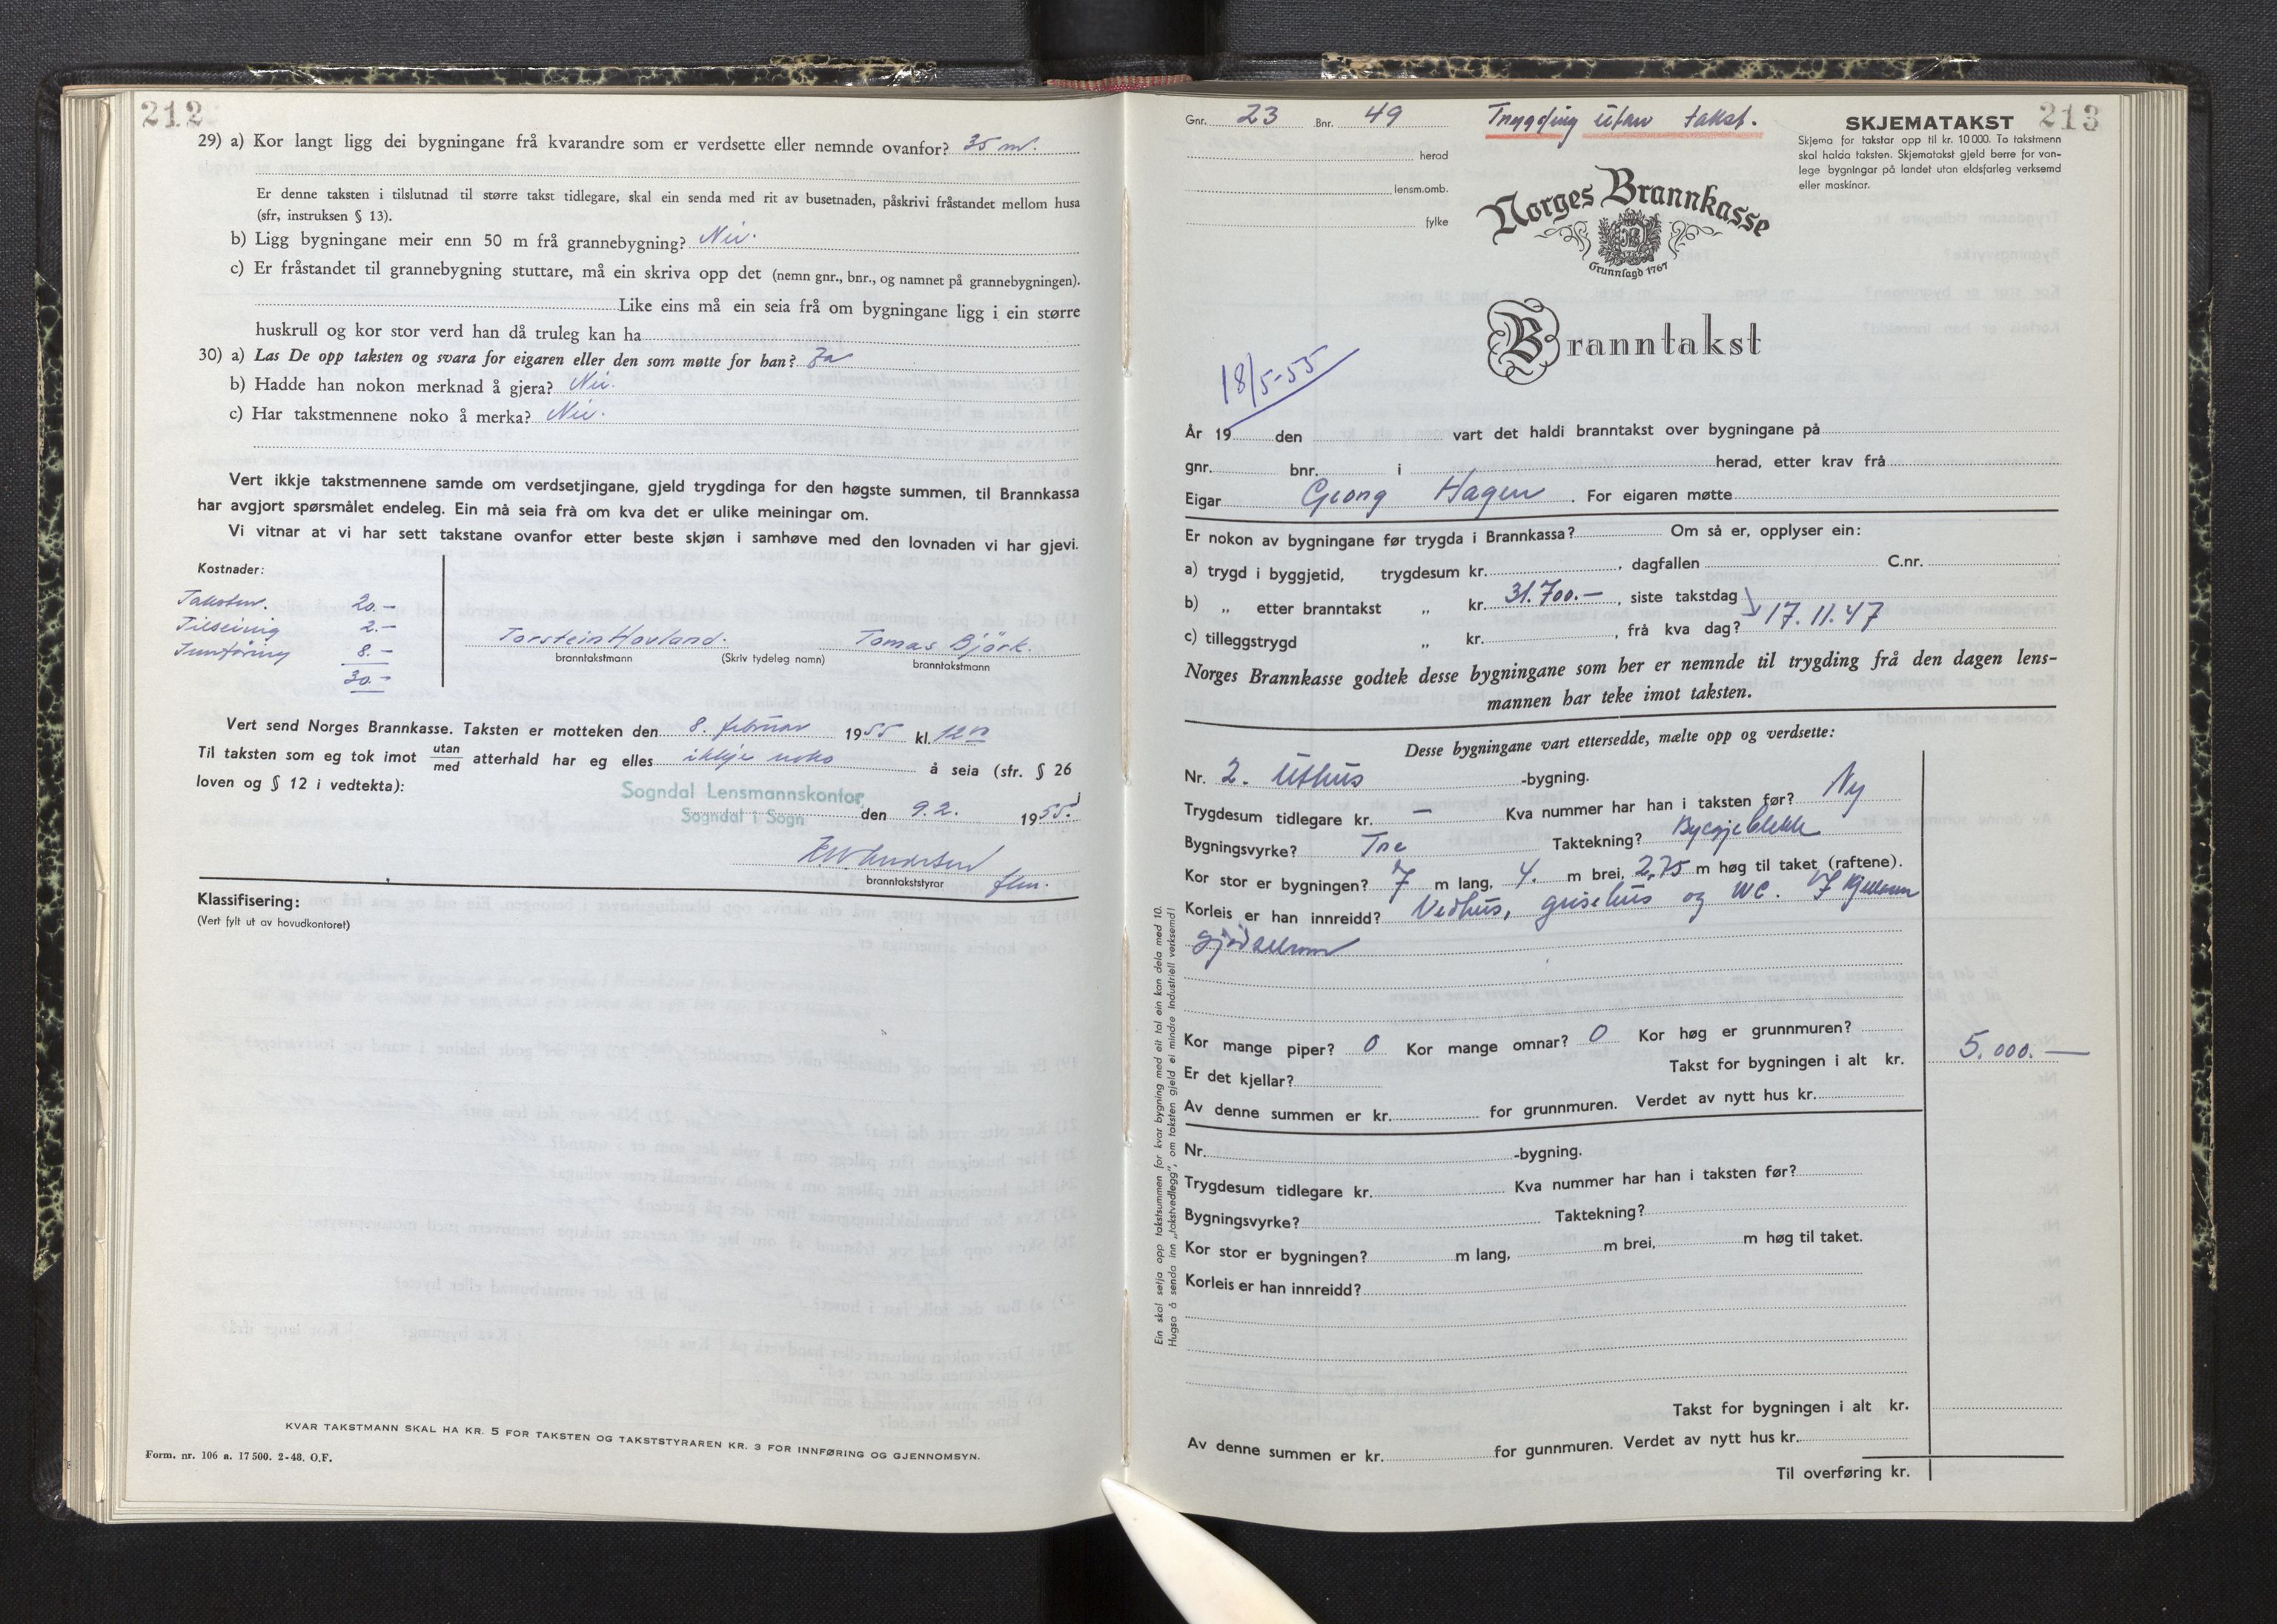 212
29) a) Kor langt ligg dei bygningane frå kvarandre som er verdsette eller nemnde ovanfor? 35 m.
Er denne taksten i tilslutnad til større takst tidlegare, skal ein senda med rit av busetnaden, påskrivi fråstandet mellom husa
(sfr, instruksen § 13).
b) Ligg bygningane meir enn 50 m frå grannebygning? Nei.
c) Er fråstandet til grannebygning stuttare, må ein skriva opp det (nemn gnr., bnr., og namnet på grannebygningen).
Like eins må ein seia frå om bygningane ligg i ein større
huskrull og kor stor verd han då truleg kan ha
30) a) Las De opp taksten og svara for eigaren eller den som møtte for han? Ja
b) Hadde han nokon merknad å gjera? Nei.
c) Har takstmennene noko å merka? Nei.
Vert ikkje takstmennene samde om verdsetjingane, gjeld trygdinga for den høgste summen, til Brannkassa
har avgjort spørsmålet endeleg. Ein må seia frà om kva det er ulike meiningar om.
Vi vitnar at vi har sett takstane ovanfor etter beste skjøn i samhøve med den lovnaden vi har gjevi.
Kostnader:
Taksten. 20.-
Tilseiing 2.-
Innføring 8.-
30.-
Torstein Hovland. Tomas Björk.
branntakstmann (Skriv tydeleg namn) branntakstmann
Vert send Norges Brannkasse. Taksten er motteken den 8. februar 1955 kl. 12 00
Til taksten som eg tok imot utan/med atterhald har eg elles ikkje noko å seia (sfr. § 26
loven og § 12 i vedtekta):
Sogndal Lensmannskontor,
Sogndal i Sogn den 9.2. 1955.
branntakststyrar
Klassifisering:
(Vert fylt ut av hovudkontoret)
KVAR TAKSTMANN SKAL HA KR. 5 FOR TAKSTEN OG TAKSTSTYRAREN KR. 3 FOR INNFØRING OG GJENNOMSYN.
Form. nr. 106 a. 17500. 2-48. O.F.
213
Gnr. 23 Bnr. 49 Trygding utan takst.
SKJEMATAKST
Skjema for takstar opp til kr. 10000. To takstmenn
skal halda taksten. Skjematakst gjeld berre for van-
lege bygningar på landet utan eldsfarleg verksemd
eller maskinar.
herad
lensm.omb.
fylke
Norges Brannkasse
Grunnlagd 1767
Branntakst
18/5-55
År 19 den vart det haldi branntakst over bygningane på
gnr. bnr. i herad, etter krav frå
Eigar Georg Hagen. For eigaren møtte
Er nokon av bygningane før trygda i Brannkassa? Om så er, opplyser ein:
a) trygd i byggjetid, trygdesum kr. , dagfallen C.nr.
b) „ etter branntakst „ kr. 31.700.- , siste takstdag
c) tilleggstrygd „ kr. , frå kva dag? 17.11.47
Norges Brannkasse godtek desse bygningane som her er nemnde til trygding frå den dagen lens-
mannen har teke imot taksten.
Desse bygningane vart ettersedde, mælte opp og verdsette:
Nr. 2. Uthus -bygning.
Trygdesum tidlegare kr. - Kva nummer har han i taksten før? Ny
Bygningsvyrke? Tre Taktekning? Bycgjeblekk
Kor stor er bygningen? 7 m lang, 4. m brei, 2,75 m høg til taket (raftene).
Korleis er han innreidd? Vedhus, grisehus og WC. I kjellaren
gjødselrom
Kor mange piper? 0 Kor mange omnar? 0 Kor høg er grunnmuren?
Er det kjellar? Takst for bygningen i alt kr. 5.000.-
Av denne summen er kr. for grunnmuren. Verdet av nytt hus kr.
Nr. -bygning.
Trygdesum tidlegare kr. Kva nummer har han i taksten før?
Bygningsvyrke? Taktekning?
Kor stor er bygningen? m lang, m brei, m høg til taket.
Korleis er han innreidd?
Takst for bygningen i alt kr.
Av denne summen er kr. for gunnmuren. Verdet av nytt hus kr.
Til overføring kr.
Ein skal setja opp takstsummen for kvar bygning med eit tal ein kan dela med 10.
Hugso å senda inn „takstvedlegg", om taksten gjeld ei mindre industriell verksemd!